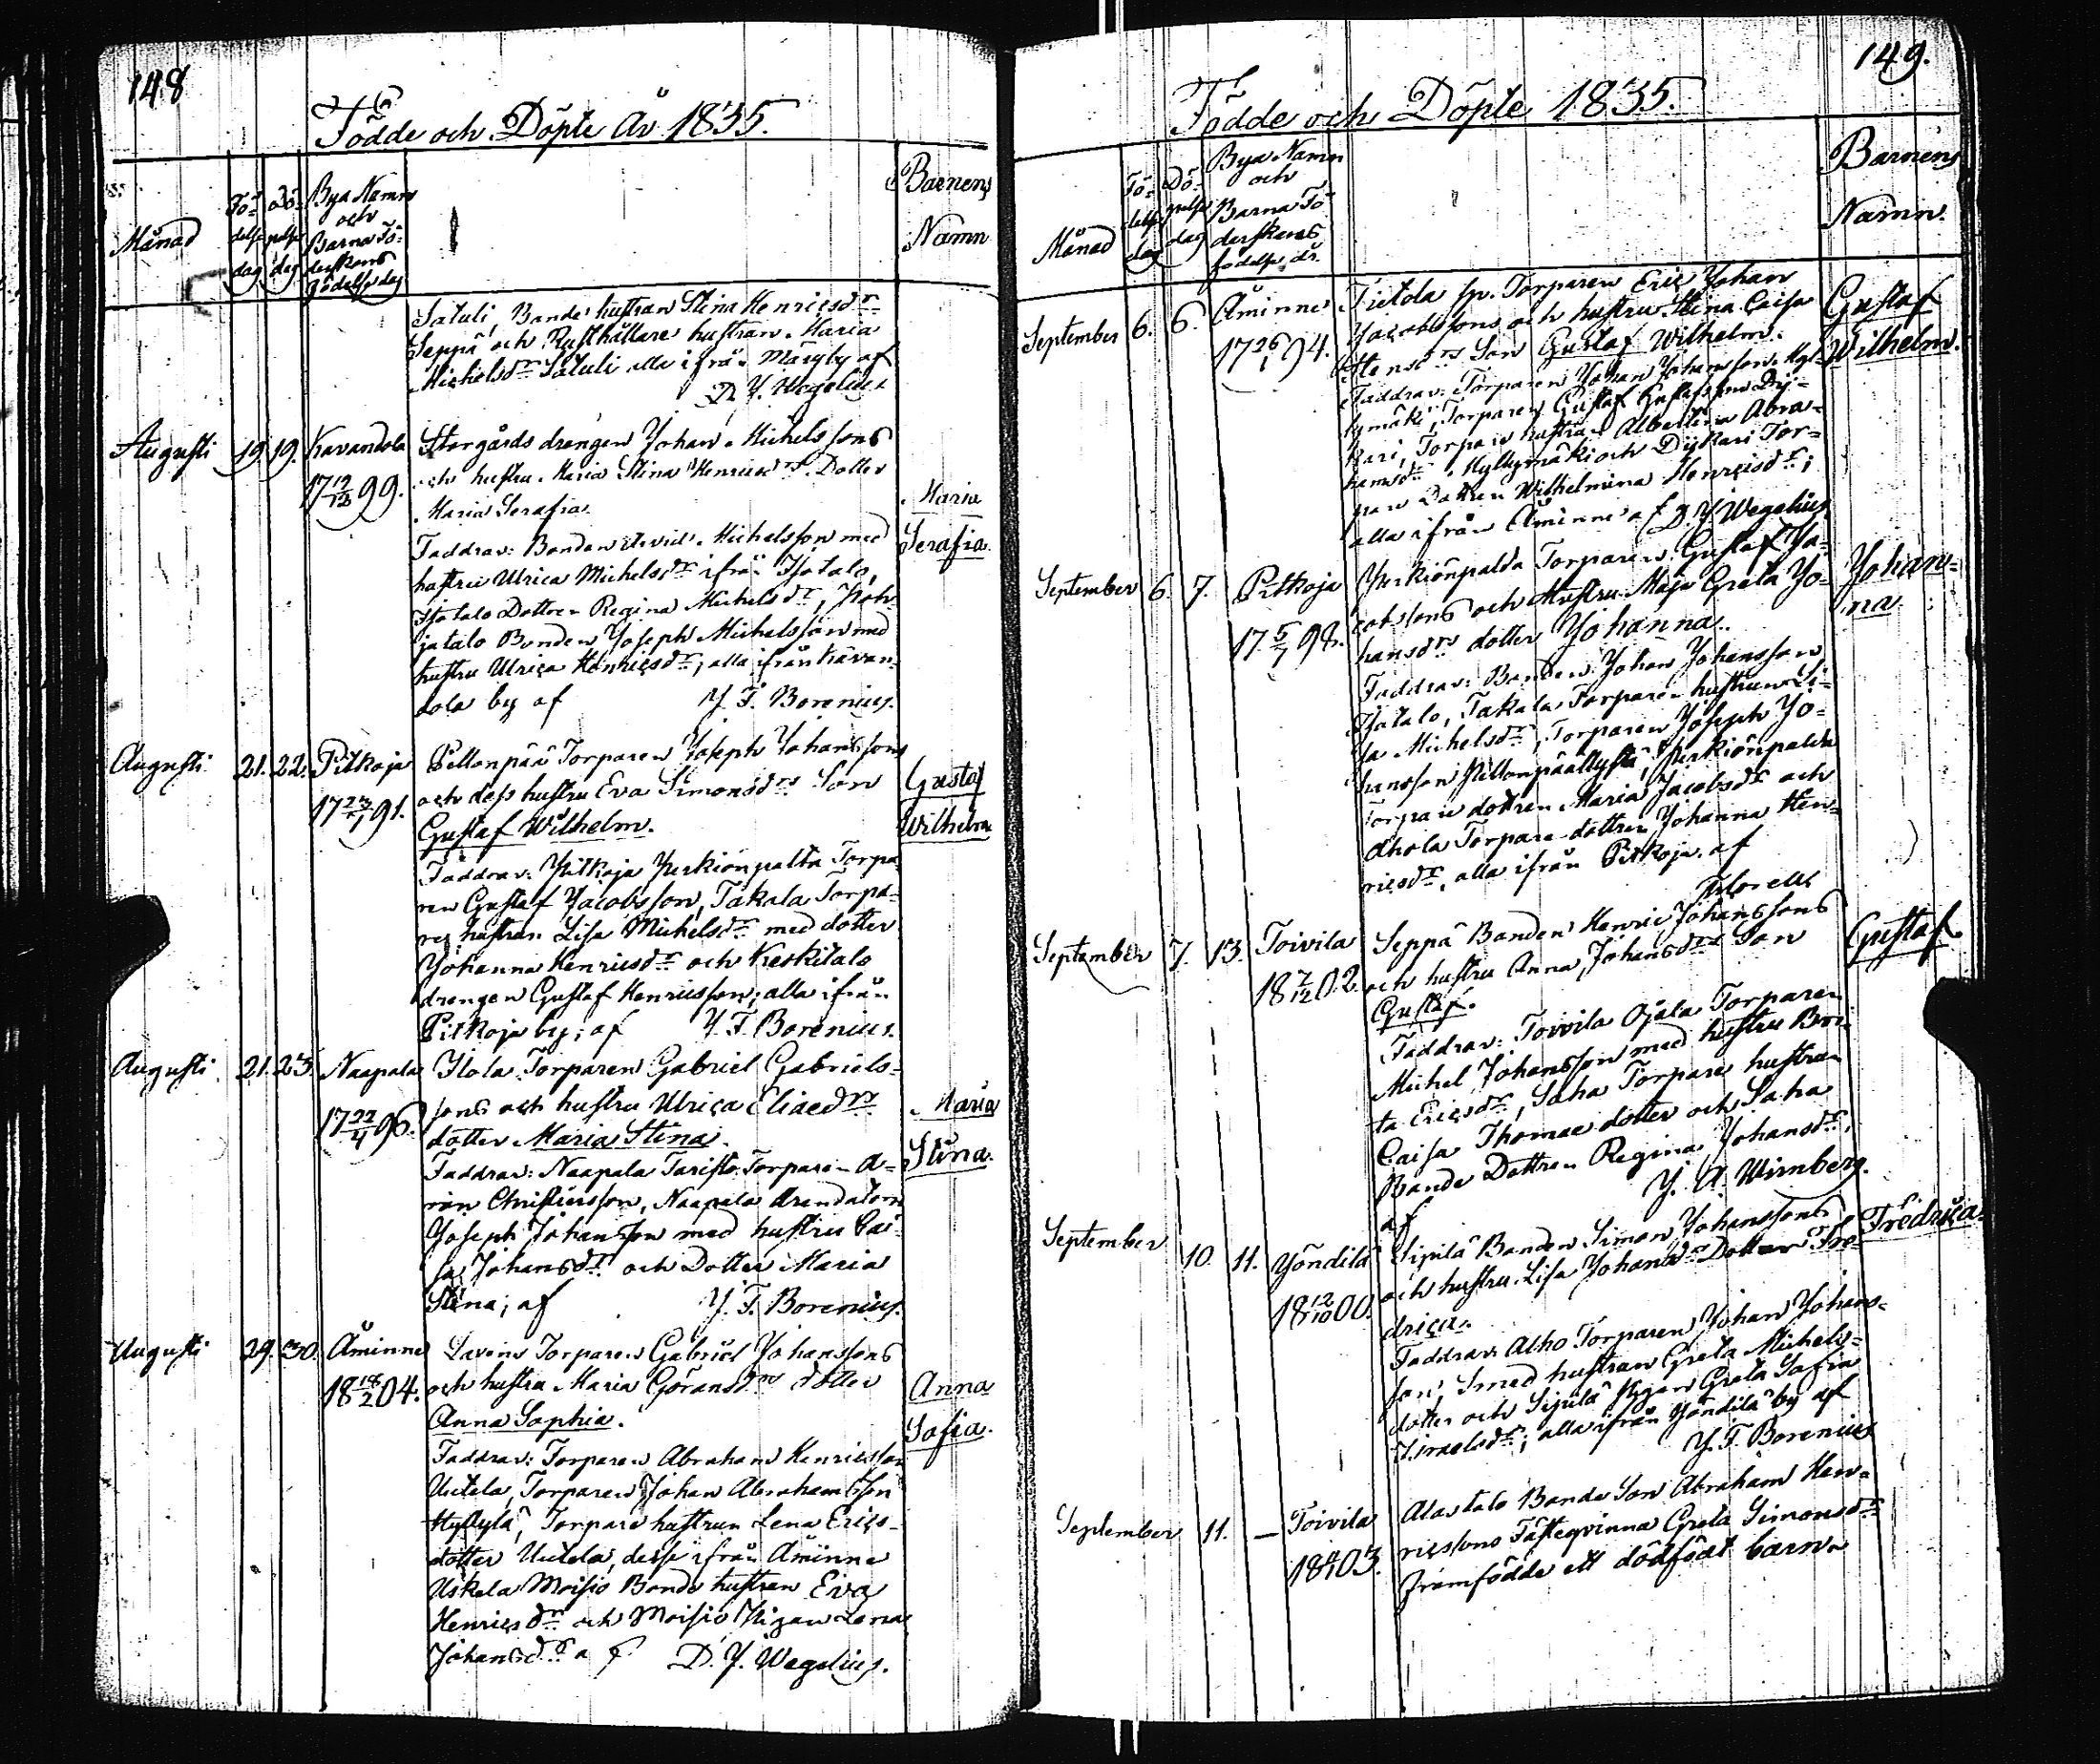 148
Födde och Döpte År 1835.
Månad
Fö-
delse
dag
Dö-
pelse
dag
Bya Namn
och
Barna Fö-
derskans
födelse dag
Barnens
Namn
Satuli, Bonde hustrun Stina Henricsdr
Seppä och Rusthållare hustrun Maria
Michelsdr Satuli alla ifrån by af
D. J. Wegelius
Augusti 19. 19. Kavandola
17 12/12 99.
Storgårds drengen Johan Michelssons
och hustru Maria Stina Henricsdrs Dotter
Maria Serafia.
Maria
Serafia.
Faddrar: Bonden Michelsson med
hustru Ulrica Michelsdr ifrån Isotalo,
Isotalo Dottren Regina Michelsdr,
jatalo Bonden Joseph Michelsson med
hustru Ulrica Henricsdr, alla ifrån Kavan-
dola by af J. F. Borenius.
Augusti 21. 22. Pitkoja
17 23/1 91.
Pellonpää Torparen Joseph Johanssons
och dess hustru Eva Simonsdrs Son
Gustaf Wilhelm.
Gustaf
Wilhelm
Faddrar: Pitkoja Yrkiönpalta Torpa-
ren Gustaf Jacobsson, Takala Torpa-
res hustrun Lisa Michelsdr med dotter
Johanna Henricsdr och Keskitalo
drengen Gustaf Henricsson; alla ifrån
Pitkoja by; af J. F. Borenius.
Augusti 21. 23. Naapala
17 22/4 96.
Ilola Torparen Gabriel Gabriels-
sons och hustru Ulrica Eliaedrs
dotter Maria Stina.
Maria
Stina.
Faddrar: Naapala Taristo Torparen A-
ron Christiersson, Naapala Arendatorn
Joseph Johansson med hustru Cai-
sa Johansdr och Dotter Maria
Stina; af J. F. Borenius.
Augusti 29. 30. Åminne
18 18/2 04.
Lavens Torparen Gabriel Johanssons
och hustru Maria Göransdrs dotter
Anna Sophia.
Anna
Sofia.
Faddrar: Torparen Abraham Henricsson
Uutela, Torparen Johan Abrahamsson
Hyllylä, Torpare hustrun Lena Erics-
dotter Uutela, desse ifrån Åminne
Uskela Moisio Bonde hustrun Eva
Henricsdr och Moisio Pigan Lena
Johansdr af D. J. Wegelius.
149.
Födde och Döpte 1835.
Månad
Fö-
delse
dag
Dö-
pelse
dag
Bya Namn
och
Barna Fö-
derskans
födelse år.
Barnens
Namn.
September 6. 6. Åminne
17 26/1 94.
Tietola sp. Torparen Eric Johan
Jacobssons och hustru Stina Caisa
Hensdrs Son Gustaf Wilhelm.
Gustaf
Wilhelm.
Faddrar: Torparen Johan Johansson Kyl-
lymäki, Torparen Gustaf Gustafsson Dy-
kari, Torpare hustrun Albertina Abra-
hamsdr Kyllymäki och Dykari Tor-
pare Dottren Wilhelmina Henricsdr;
alla ifrån Åminne af D. J. Wegelius.
September 6. 7. Pitkoja
17 5/7 98.
Yrkiönpalda Torparen Gustaf Ja-
cobssons och Hustru Maja Greta Jo-
hansdrs dotter Johanna.
Johan-
na.
Faddrar: Bonden Johan Johansson
Isotalo, Takala Torparen hustrun Li-
sa Michelsdr, Torparen Joseph Jo-
hansson Yrkiönpalda
Torpare dottren Maria Jacobsdr och
Ahola Torpare dottren Johanna Hen-
ricsdr, alla ifrån Pitkoja. af
September 7. 13. Toivila
18 7/12 02.
Seppä Bonden Henric Johanssons
och hustru Anna Johansdrs Son
Gustaf.
Gustaf.
Faddrar: Toivila Ojala Torparen
Michel Johansson med hustru Bri-
ta Ericsdr, Saha Torpare hustrun
Caisa Thomae dotter och Saha
Bonde Dottren Regina Johansdr,
af J. A. Wirnberg.
September 10. 11. Yöndilä
18 12/10 00.
Sipilä Bonden Simon Johanssons
och hustru Lisa Johansdrs Dotter Fre-
drica.
Fredrica.
Faddrar Alho Torparen Johan Johans-
son, Smed hustrun Greta Michels-
dotter och Sipilä Pigan Greta Safia
Israelsdr; alla ifrån Yöndilä by af
J. F. Borenius
September 11. — Toivila
Alastalo Bonde Son Abraham Hen-
ricssons Fästeqvinna Greta Simonsdr
framfödde ett dödfödt barn